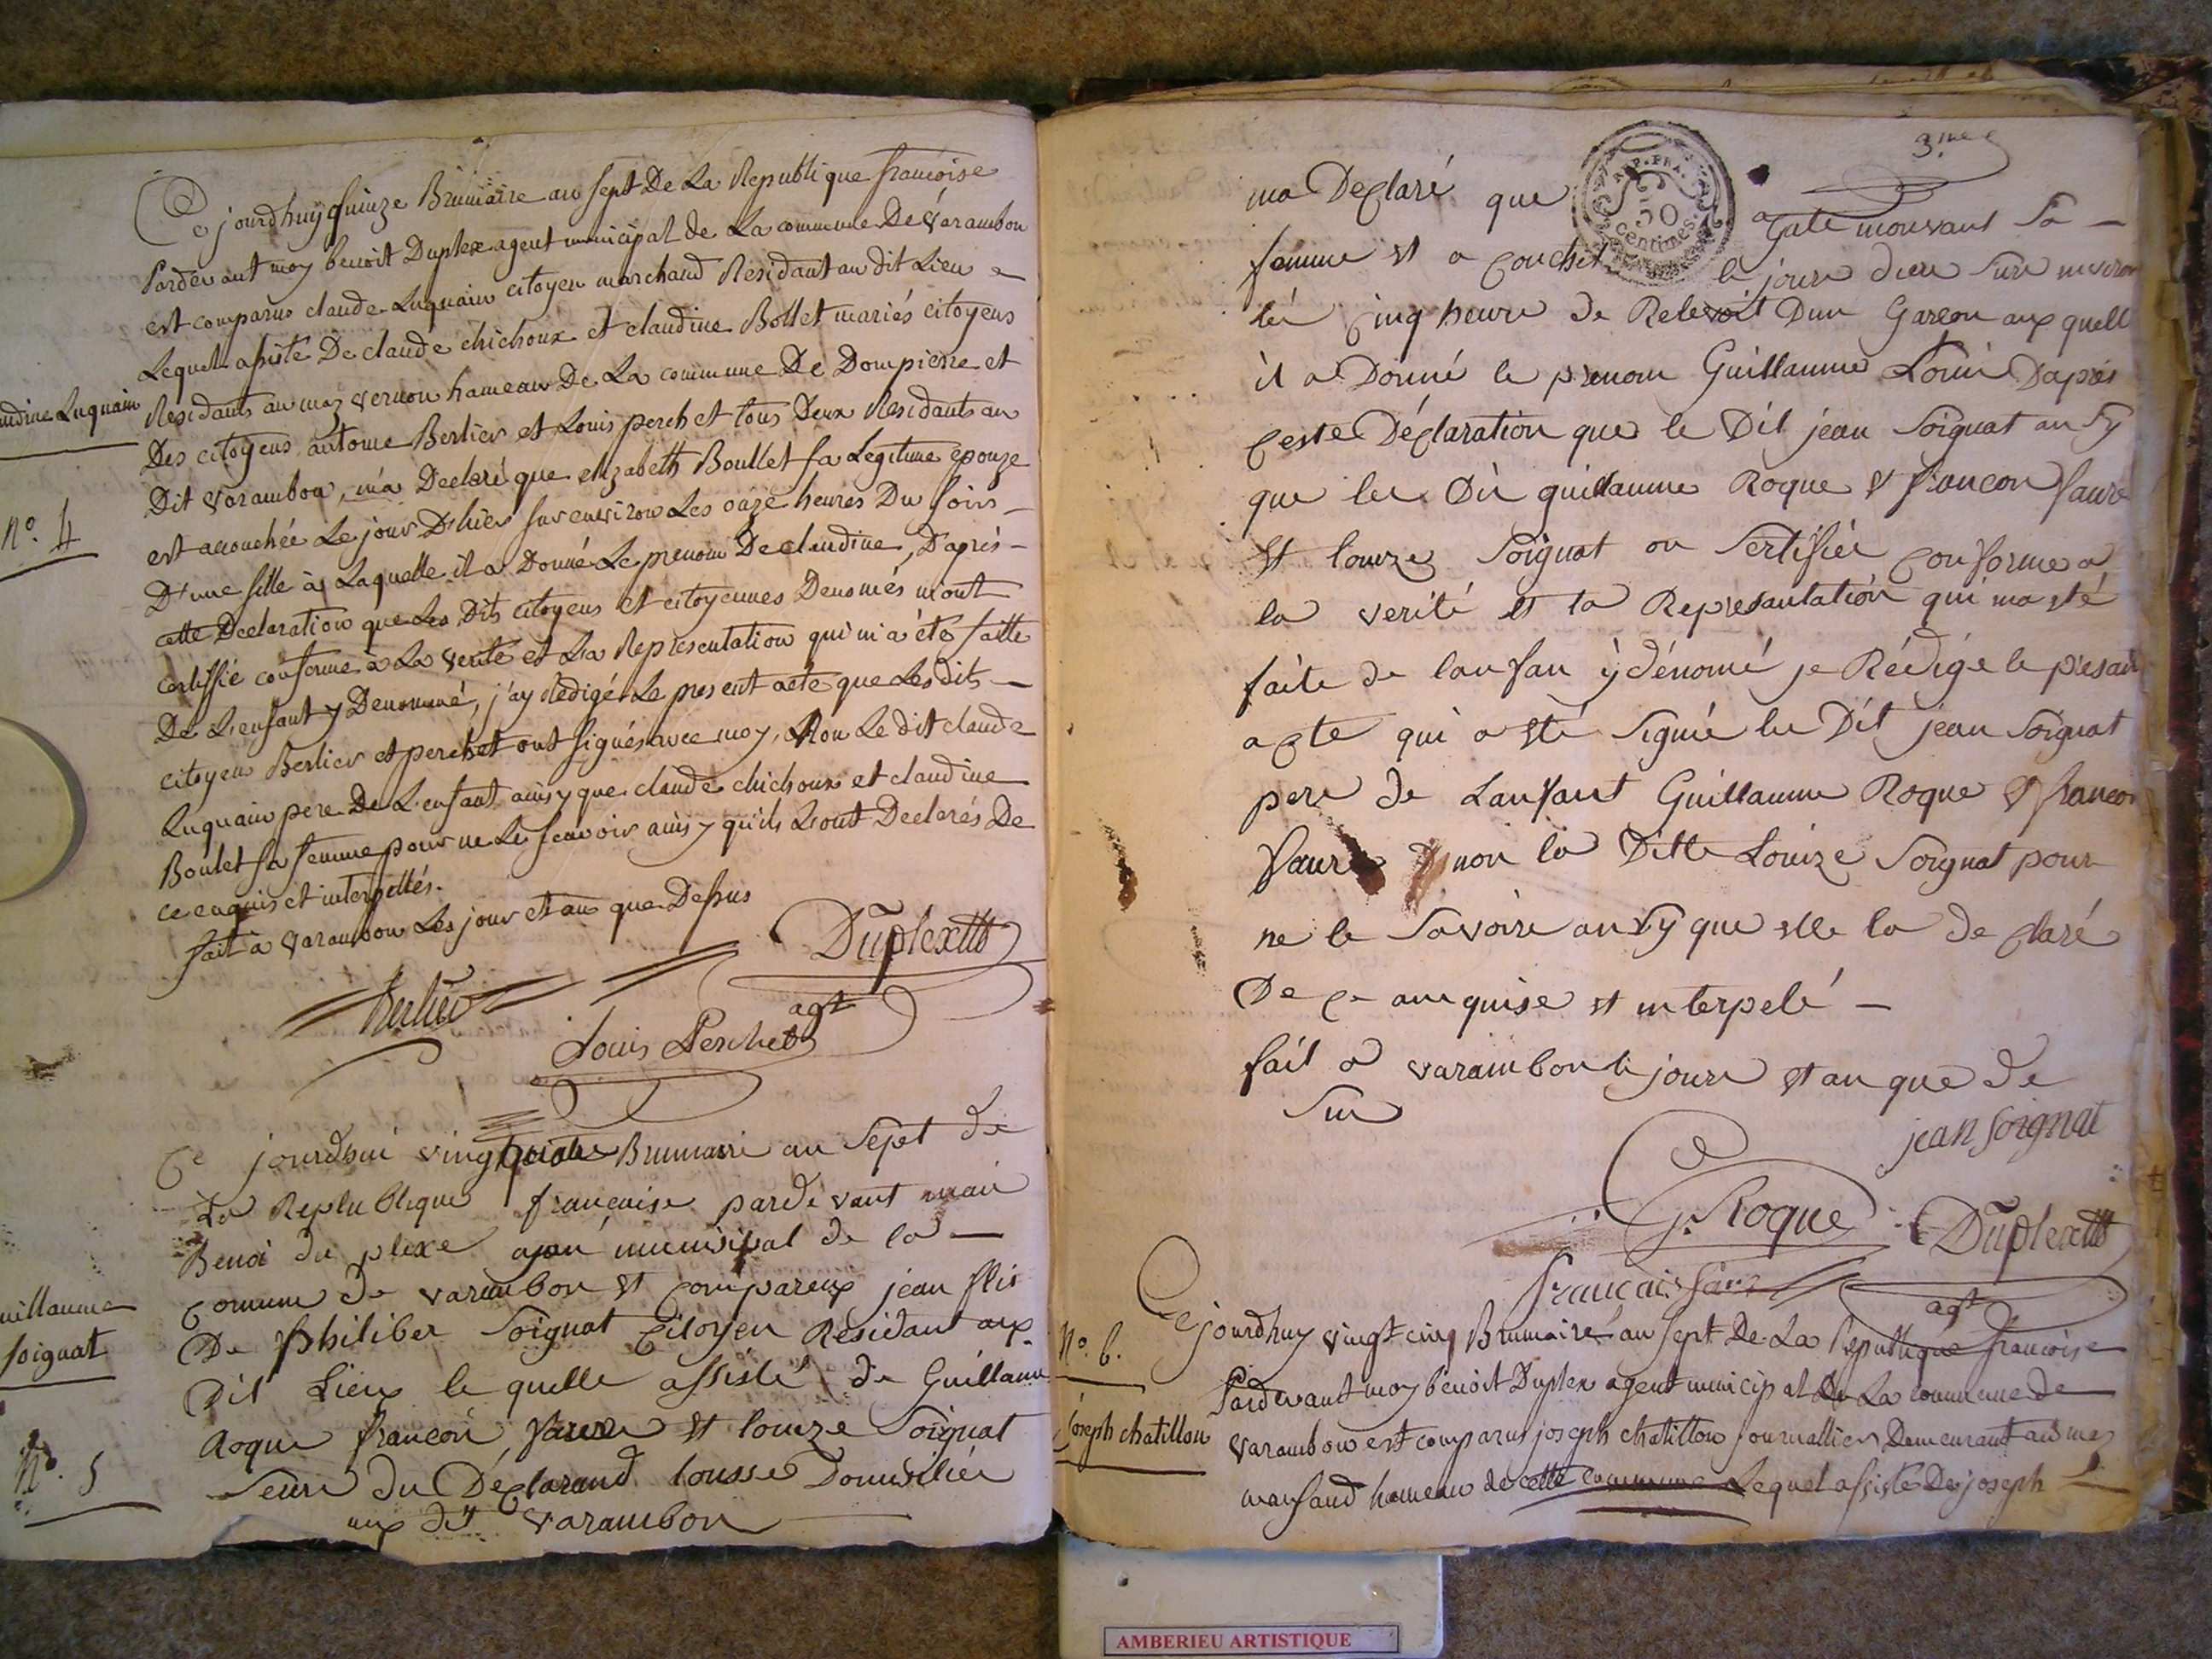 Ce jourdhuy quinze Brumaire an sept De La Republique francoise
Pardevant moy benoit Duplex agent municipal de La commune De varambon
est comparus claude Luquain citoyen marchand Residant au dit Lieu
Lequel assisté De claude chichoux et claudine Bollet mariés citoyens
Residants au maz vernon hameau De La commune De Dompierre et
Des citoyens antoine Berlier et Louis perchet tous Deux Residants au
Dit varambon, m'a Declaré que elizabeth Boullet sa Legitime epouze
est accouchée Le jour D'hier sur environ Les onze heures Du soirs
D'une fille à Laquelle il a Donné Le prenom De claudine, D'après
cette Declaration que Les Dits citoyens et citoyennes Denomés m'ont
certiffié conforme a La verité et La Representation qui m'a été faitte
De L'enfant y Denommé, j'ay Redigé Le present acte que Lesdits
citoyens Berlier et perchet ont signés avec moy, Non Le dit claude
Luquain pere De L'enfant ainsy que claude chichoux et claudine
Boulet sa femme pour ne Le scavoir ainsy qu'ils L'ont Declarés De
ce enquis et interpellés.
fait à varambon Les jour et an que Dessus
udine Luquain
N.o 4
Duplex
agt
Berlier
Louis Perchet
Ce jourdhui vingt quatre Brumaire an Sept de
La Replublique francaise pardevant moi
Benoi du plexe ajan municipal de la
comune de varambon et comparux jean flis
De philiber Soignat Citoyen Residant aux
Dit Lieux le quelle assisté de Guillaume
Roque francon faure et louize Soignat
Seure du Déclarand tousse Domisiliée
aux dit varambon
uillaume
Soignat
N.o 5
3.me
AMP. FRA.
50
Centimes
ma Declaré que agate mouvant Sa
femme et a couchet le jours diere sure inviron
lés cinq heure de Relevoit Dun Garcon aux quell
il a Donné le prenom Guillaume Louis Daprés
ceste Déclaration que le Dit jean Soignat ansy
que les Dis guillaume Roque et francon faure
et louize Soignat on Sertifiée conforme a
la verité et la Represantation qui ma été
faite de lanfan ÿ dénomé je Rédige le présan
acte qui a été Signié le Dit jean Soignat
pere de Lanfant Guillaume Roque et francon
faure et non la Ditte Louize Soignat pour
ne le Savoire ansy que elle la de claré
De ce anquise et interpelé
fait a varambon le joure et an que de
Sus
jean Soignat
G. Roque
Duplex
agt
francais faure
N.o 6.
Joseph chatillon
Ce jourdhuy vingt cinq Brumaire an sept De La Republique francoise
Pardevant moy benoit Duplex agent municipal De La commune de
varambon est comparus joseph chatillon journallier Demeurant au maz
mansaud hameau de cette commune Lequel assisté De joseph
AMBERIEU ARTISTIQUE